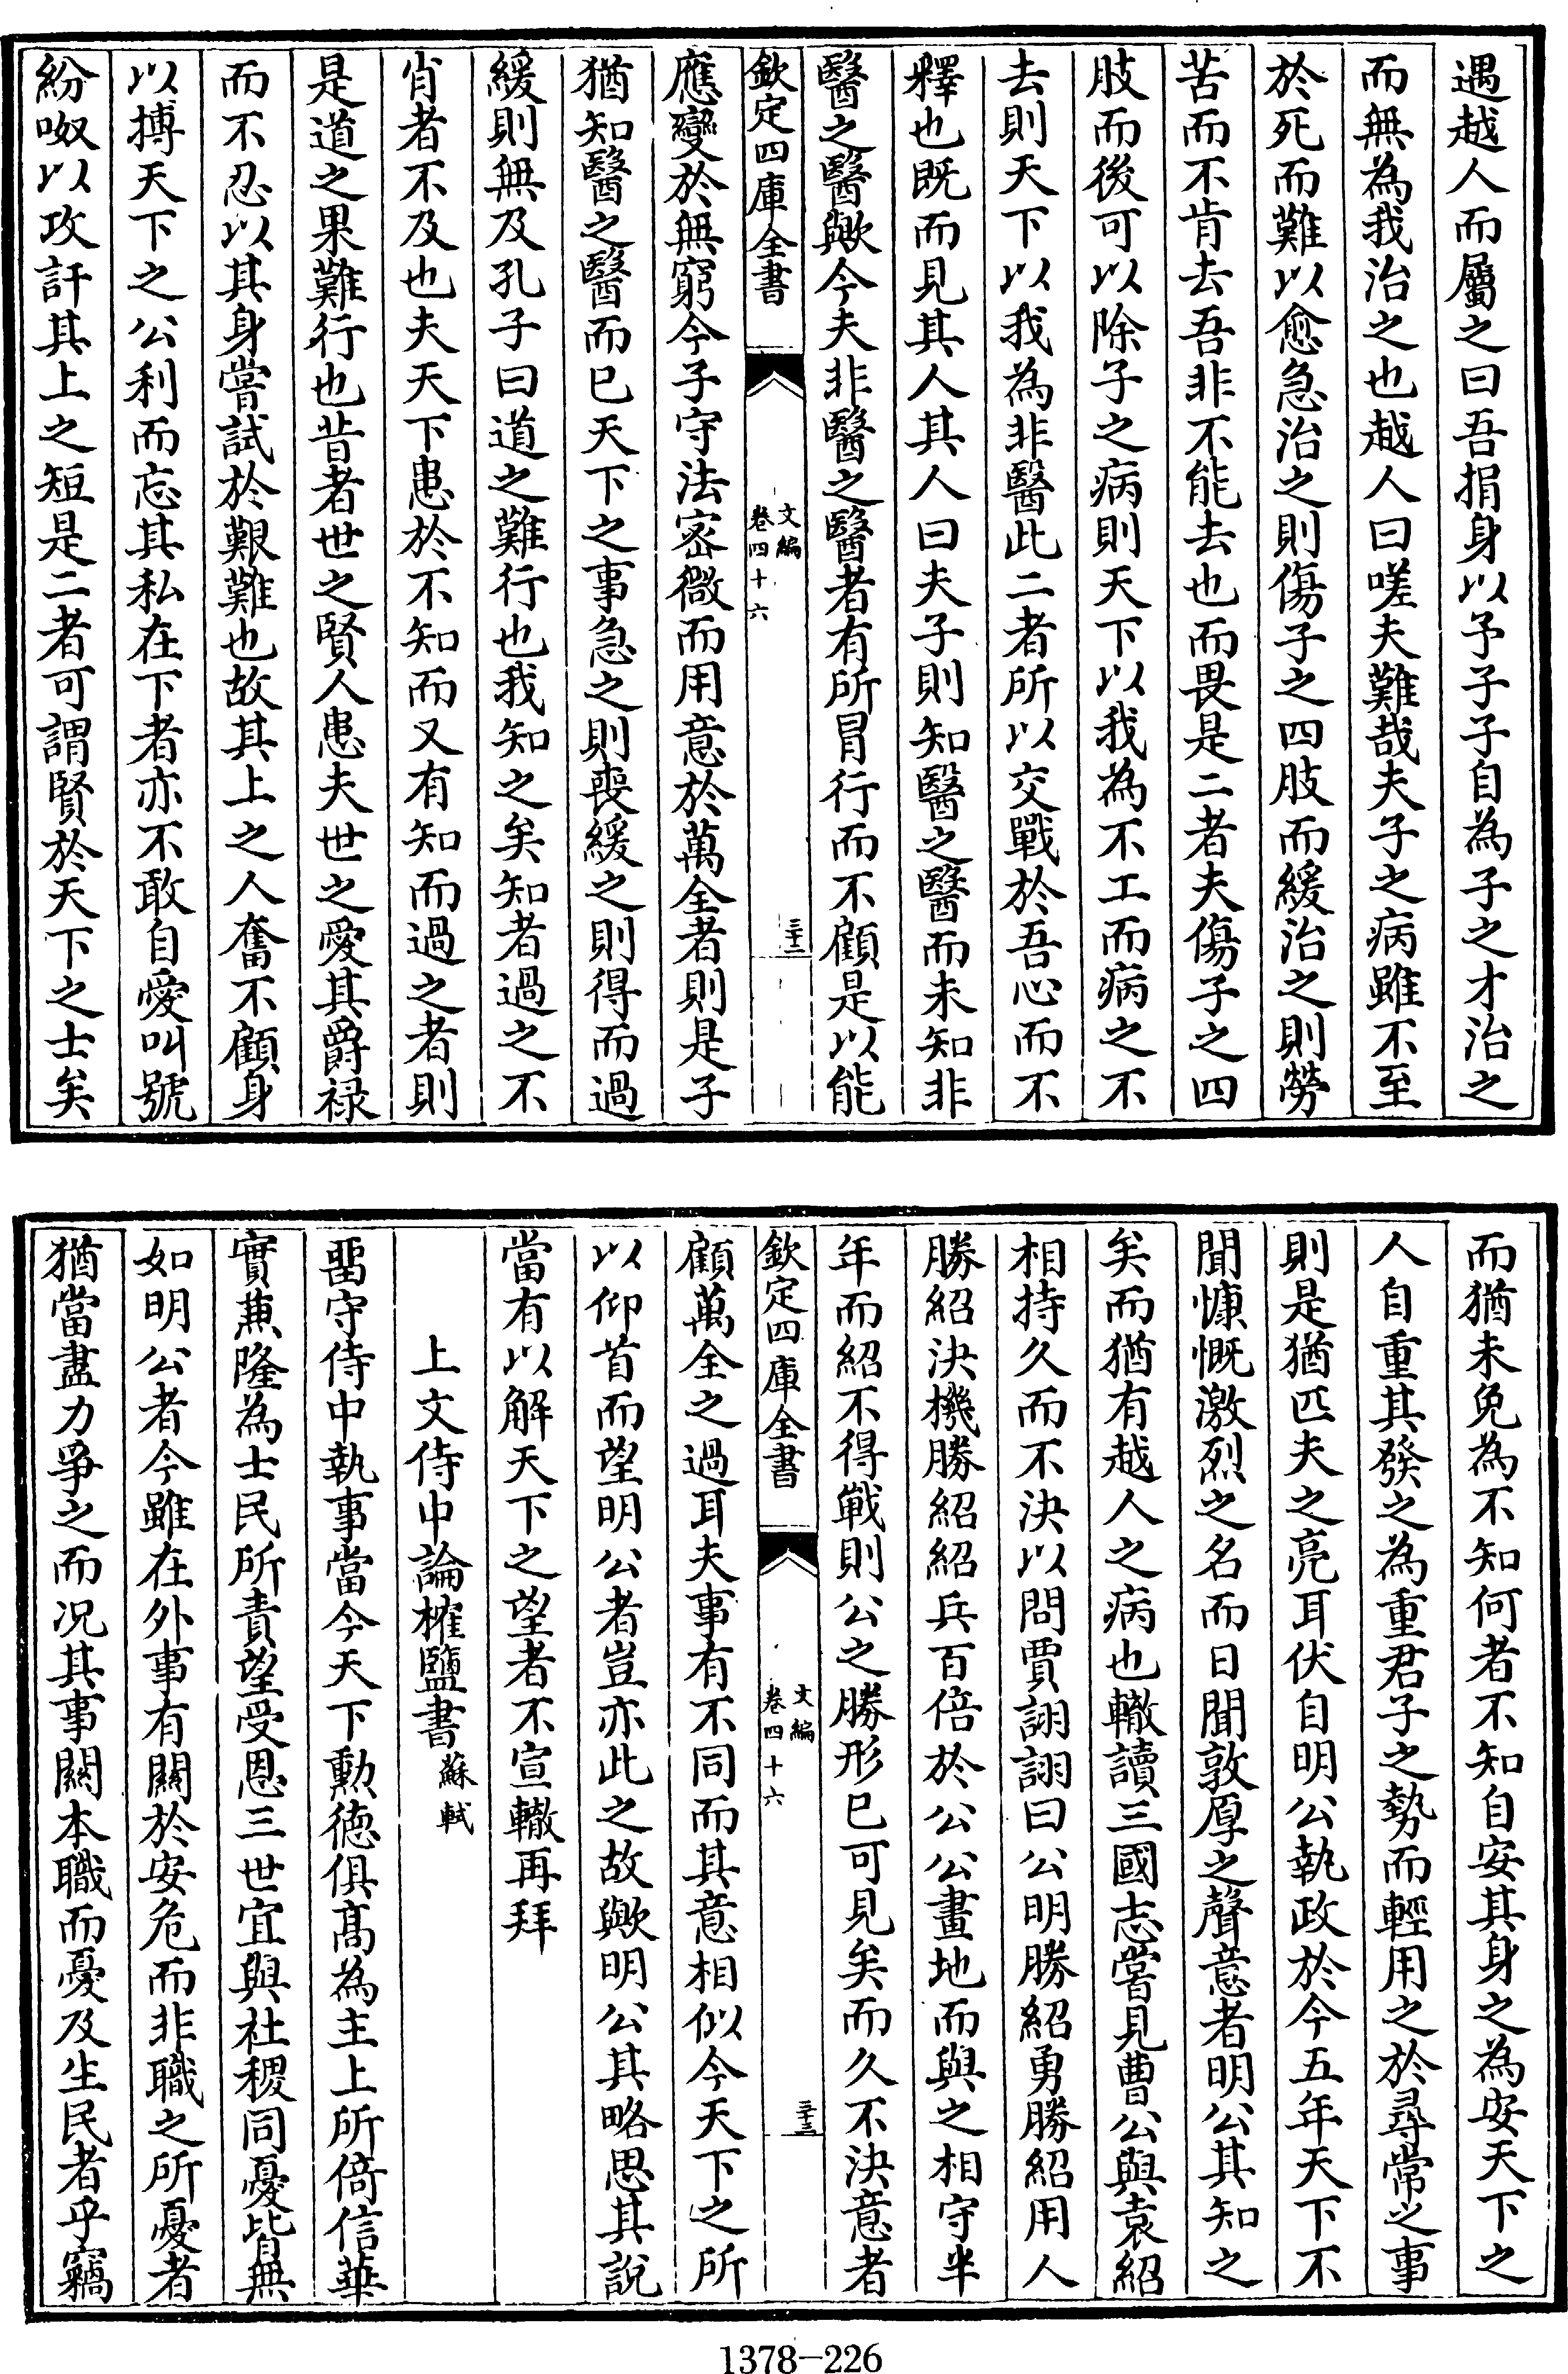 遇越人而屬之曰吾捐身以予子子自為子之才治之
而無為我治之也越人曰嗟夫難哉夫子之病雖不至
於死而難以愈急治之則傷子之四肢而緩治之則勞
苦而不肯去吾非不能去也而畏是二者夫傷子之四
肢而後可以除子之病則天下以我為不工而病之不
去則天下以我為非醫此二者所以交戰於吾心而不
釋也既而見其人其人曰夫子則知醫之醫而未知非
醫之醫歟今夫非醫之醫者有所冒行而不顧是以能
欽定四庫全書
文編
卷四十六
三十二
應變於無窮今子守法密微而用意於萬全者則是子
猶知醫之醫而已天下之事急之則喪緩之則得而過
緩則無及孔子曰道之難行也我知之矣知者過之不
肖者不及也夫天下患於不知而又有知而過之者則
是道之果難行也昔者世之賢人患夫世之愛其爵祿
而不忍以其身嘗試於艱難也故其上之人奮不顧身
以搏天下之公利而忘其私在下者亦不敢自愛叫號
紛呶以攻訐其上之短是二者可謂賢於天下之士矣
而猶未免為不知何者不知自安其身之為安天下之
人自重其發之為重君子之勢而輕用之於尋常之事
則是猶匹夫之亮耳伏自明公執政於今五年天下不
聞慷慨激烈之名而日聞敦厚之聲意者明公其知之
矣而猶有越人之病也轍讀三國志嘗見曹公與袁紹
相持久而不決以問賈詡詡曰公明勝紹勇勝紹用人
勝紹決機勝紹紹兵百倍於公公畫地而與之相守半
年而紹不得戰則公之勝形已可見矣而久不決意者
欽定四庫全書
文編
卷四十六
三十三
顧萬全之過耳夫事有不同而其意相似今天下之所
以仰首而望明公者豈亦此之故歟明公其略思其說
當有以解天下之望者不宣轍再拜
上文侍中論榷鹽書蘇軾
畱守侍中執事當今天下勲德俱髙為主上所倚信華
實兼隆為士民所責望受恩三世宜與社稷同憂皆無
如明公者今雖在外事有關於安危而非職之所憂者
猶當盡力爭之而况其事關本職而憂及生民者乎竊
1378-226